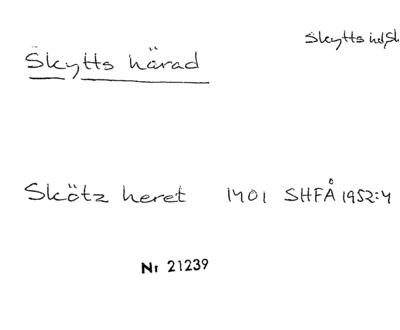 Skytts hd, Sk
Skytts härad
Skötz heret 1401 SHFÅ 1952:4
Nr 21239